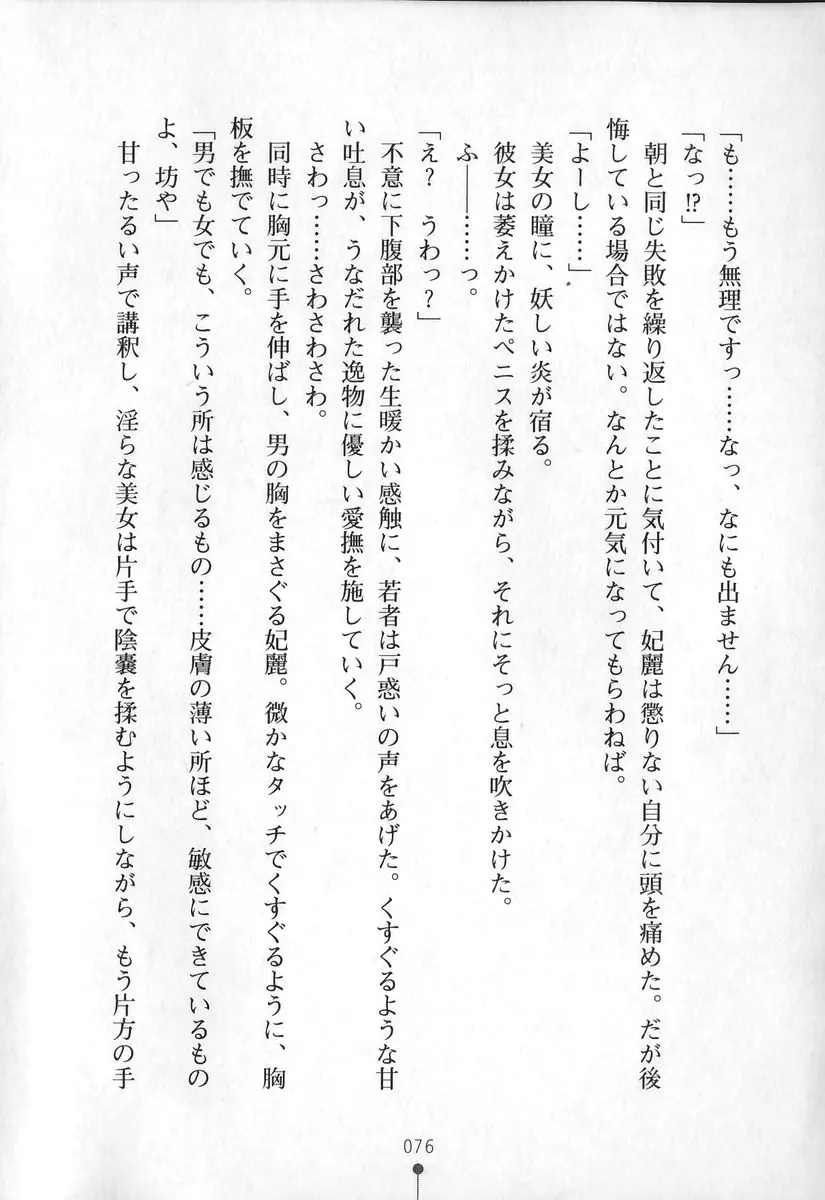 「も……もう無理ですっ……なっ、なにも出ません……」
「なっ!?」
　朝と同じ失敗を繰り返したことに気付いて、妃麗は懲りない自分に頭を痛めた。だが後
悔している場合ではない。なんとか元気になってもらわねば。
「よーし……」
　美女の瞳に、妖しい炎が宿る。
　彼女は萎えかけたペニスを揉みながら、それにそっと息を吹きかけた。
　ふ――……っ。
「え？　うわっ？」
　不意に下腹部を襲った生暖かい感触に、若者は戸惑いの声をあげた。くすぐるような甘
い吐息が、うなだれた逸物に優しい愛撫を施していく。
　さわっ……さわさわさわ。
　同時に胸元に手を伸ばし、男の胸をまさぐる妃麗。微かなタッチでくすぐるように、胸
板を撫でていく。
「男でも女でも、こういう所は感じるもの……皮膚の薄い所ほど、敏感にできているもの
よ、坊や」
　甘ったるい声で講釈し、淫らな美女は片手で陰嚢を揉むようにしながら、もう片方の手
076